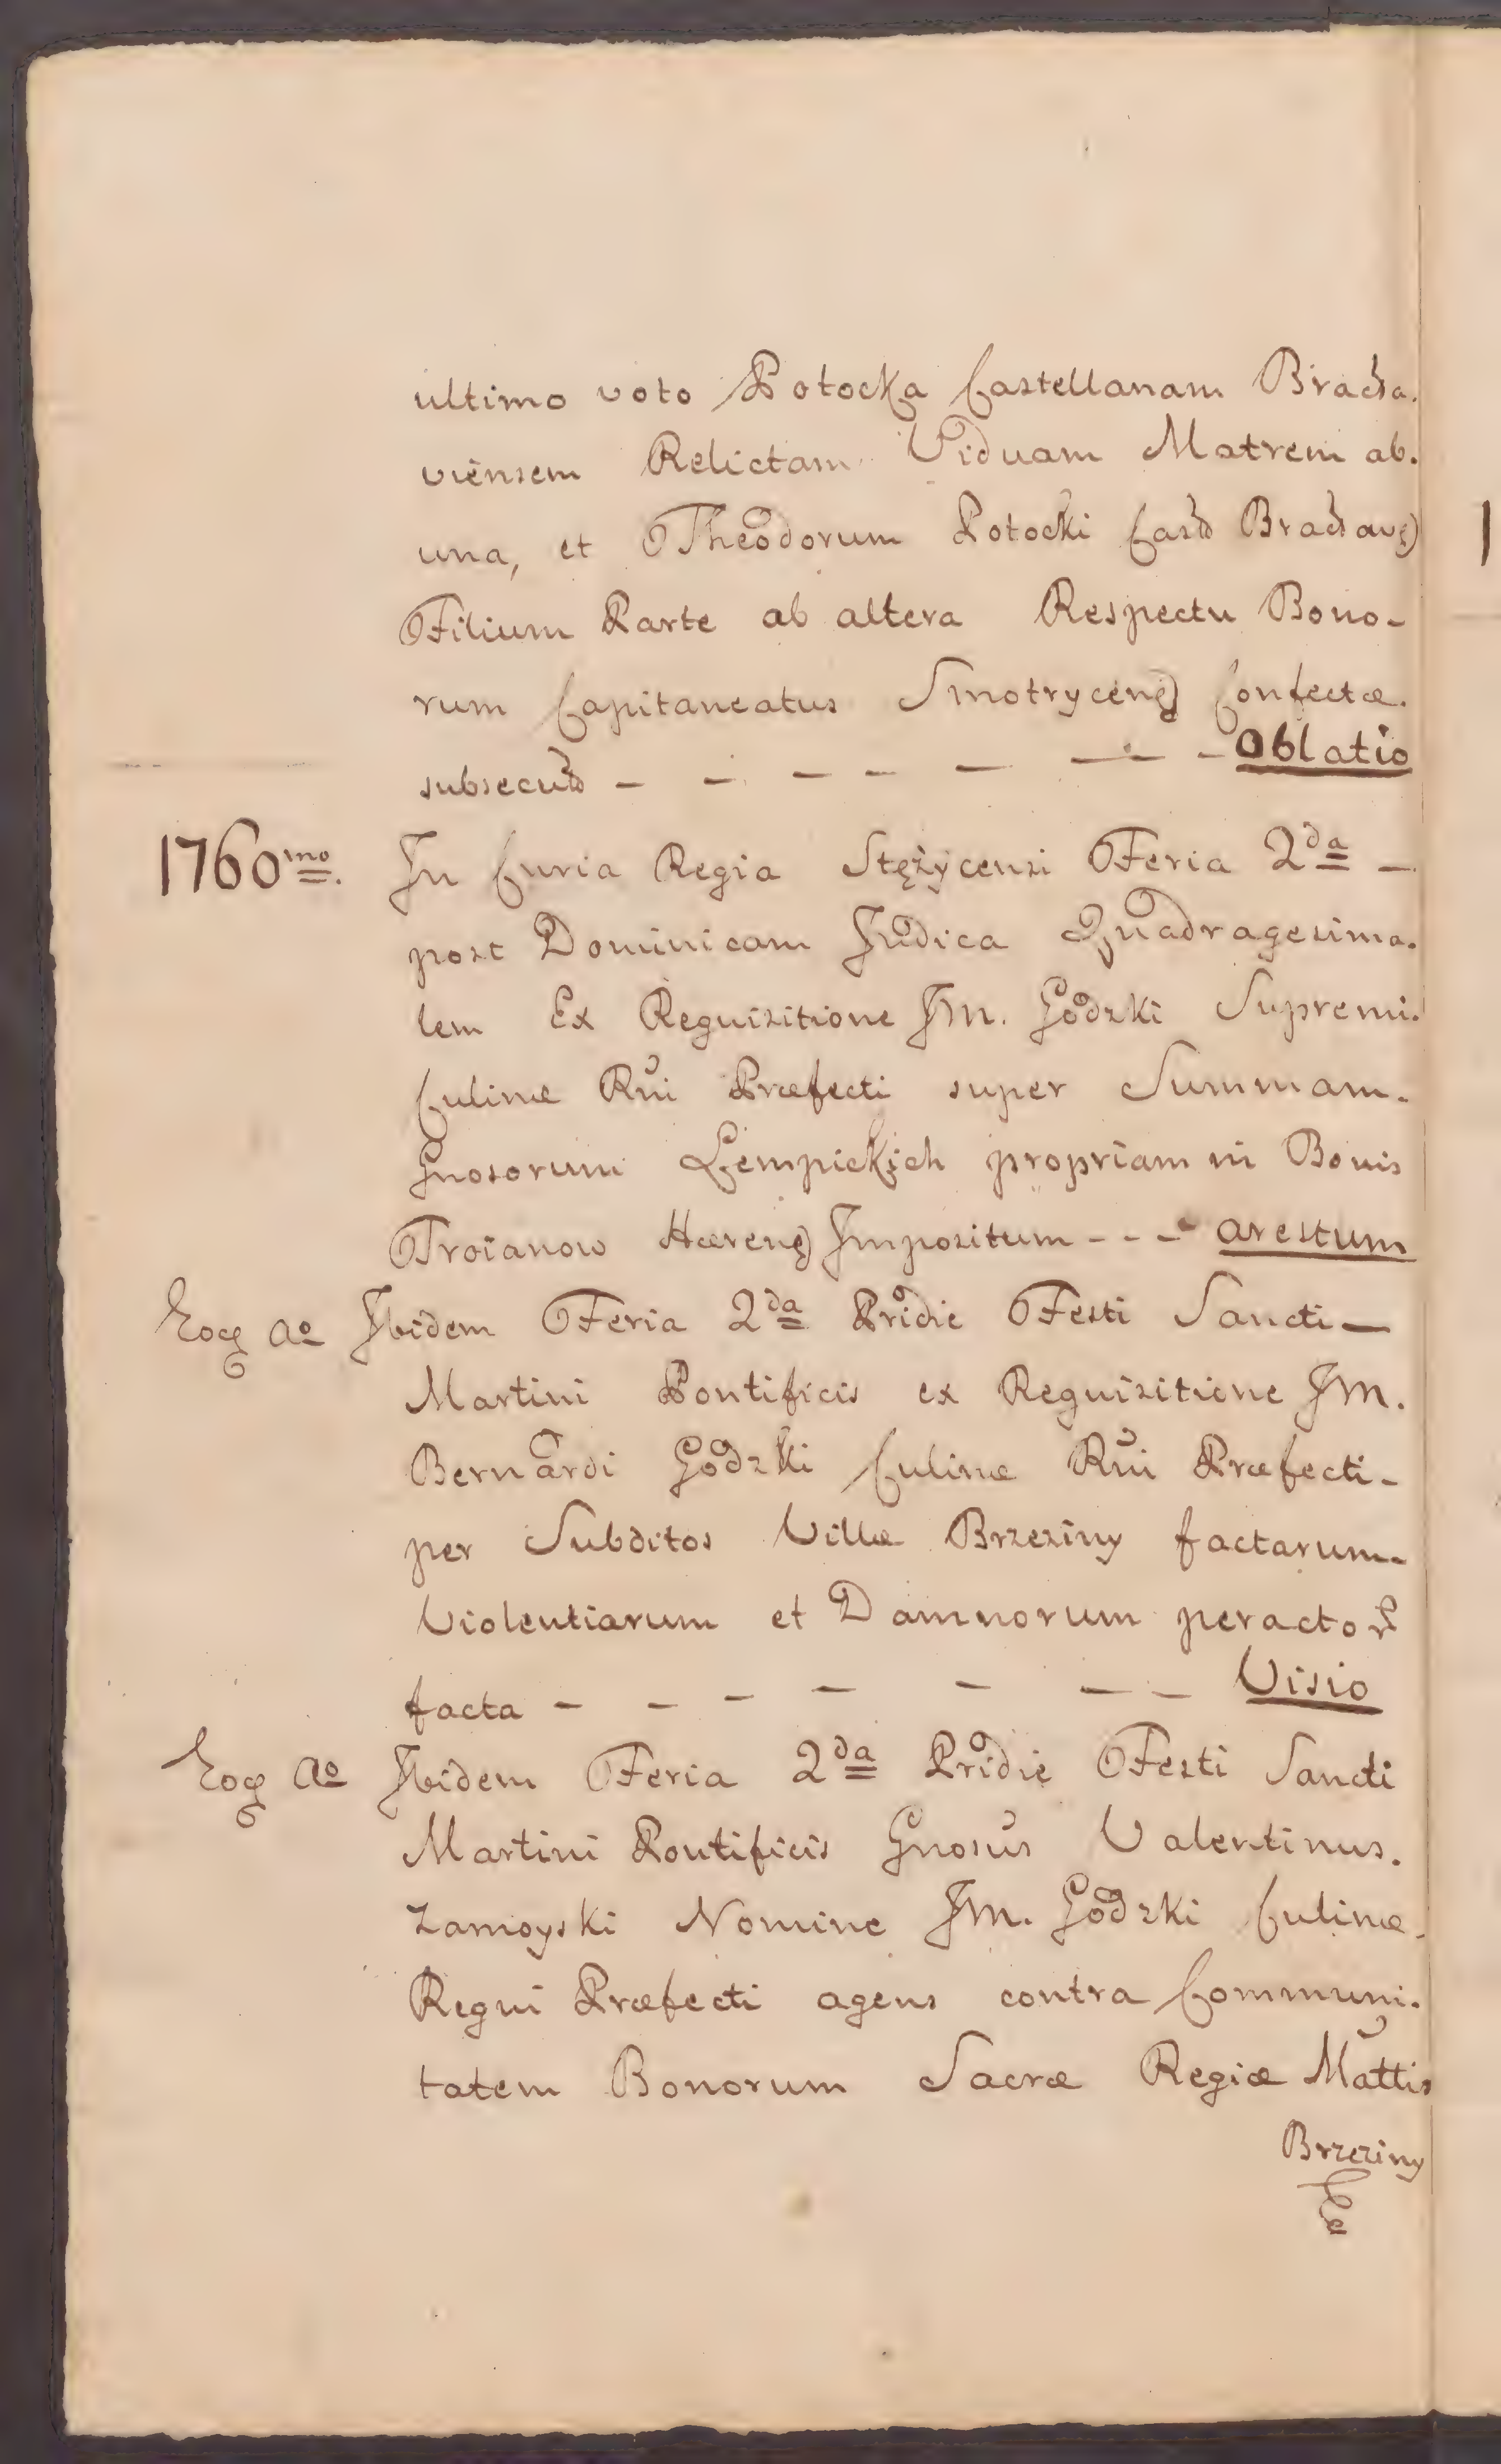 ultimo voto Potocka Castellanam Bracła.
viensem Relictam Viduam Matrem ab.
una, et Theodorum Potocki Castł Bracław)
Filium Parte ab altera Respectu Bono-
rum Capitaneatus Smotryceñ Confectæ.
subsecuta - - - - - - - Oblatio
1760mo. In Curia Regia Stężycensi Feria 2da -
post Dominicam Judica Quadragesima.
lem Ex Requisitione Jm. Godzki Supremi.
Culinæ Rñi Præfecti super Summam.
Gnosorum Łempickich propriam in Bonis
Troianow Hæren) Impositum - - - arestum
Eoq Ao Ibidem Feria 2da Pridie Festi Sancti -
Martini Pontificis ex Requisitione Jm.
Bernardi Godzki Culinæ Rñi Præfecti -
per Subditos Villæ Brzeziny factarum -
Violentiarum et Damnorum peractor
facta - - - - - - - Visio
Eoq Ao Ibidem Feria 2da Pridie Festi Sancti
Martini Pontificis Gnosus Valentinus.
Zamoyski Nomine Jm. Godzki Culinæ.
Regni Præfecti agens contra Communi.
tatem Bonorum Sacræ Regiæ Mattis
Brzeziny